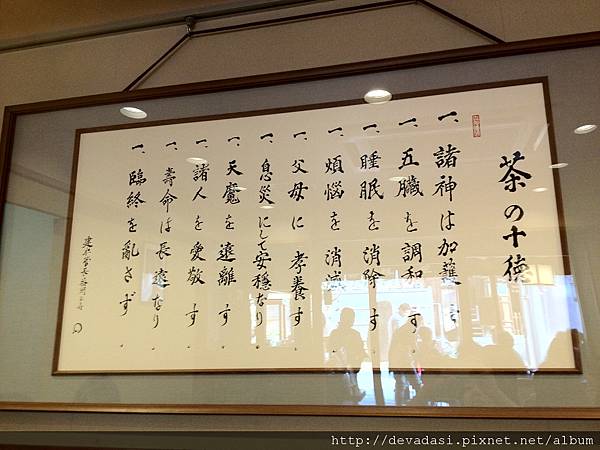 茶の十徳
一、諸神は加護す
一、五臓を調和す。
一、睡眠を消除す。
一、煩悩を消滅す。
一、父母に孝養す。
一、息災にして安穏なり。
一、天魔を遠離す。
一、諸人を愛敬す。
一、寿命は長遠なり。
一、臨終を乱さず。
http://devadasi.pixnet.net/album